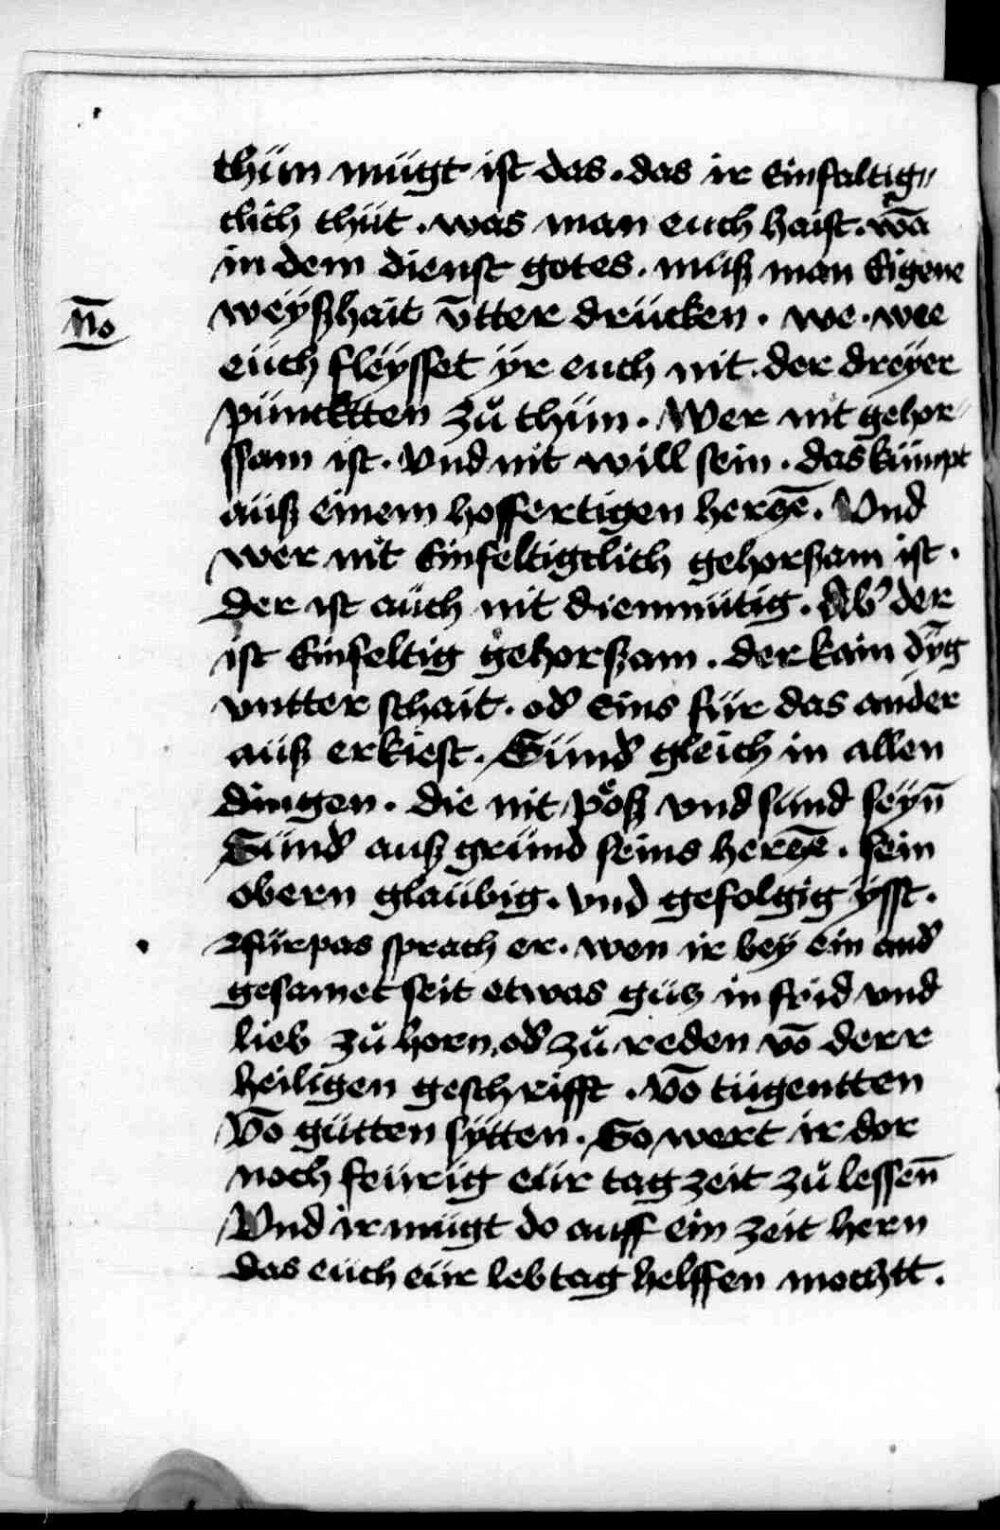 thün mügt ist das · das ir Einfaltig„
clich thüt · was man euch haist · wā
in dem dienst gotes · müß man Eigene
weÿßhait v̄tter drücken · we · wee
N̄o
eüch fleÿsset ÿr euch nit · der dreÿer
pünckten zů thün · Wer nit gehor„
ssam ist · Vnd nit will sein · das kümpt
aüß einem hoffertigen herczē · Vnd
wer nit Einfeltigclich gehorßam ist ·
der ist aüch nit diemmütig · Ab' der
ist Einfeltig gehorßam · der kain dȳg
vntter schait · od' Eins für das ander
aüß erkiest · Sünd' gleich in allen
dingen · die nit pöß vnd sünd seÿn̄
Sünd' auß gründ seins herczē · sein
obern glaübig · Vnd gefolgig ÿsst ·
fürpas sprach er · wen ir beÿ ein and'
gesamet seit etwas gütz in frid vnd
lieb zů horn, od' zů reden vō derr
heiligen geschrifft · Vō tügentten
Vō gütten sÿtten · So wert ir dor
noch feürig eür tag zeit zů lessen̄
Vnd ir mügt do auff ein zeit hern
das euch eür lebtag helffen mochtt ·